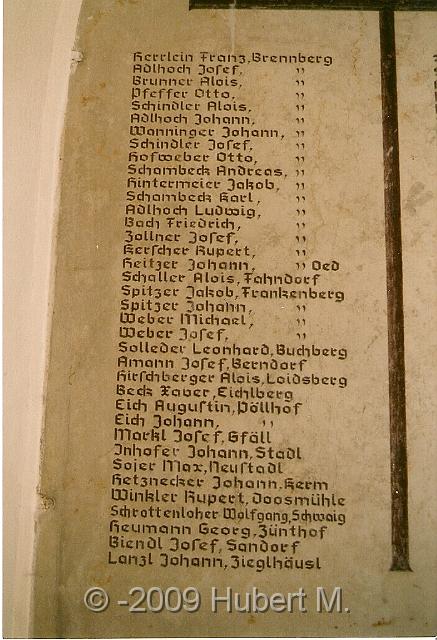 Herrlein Franz, Brennberg
Adlhoch Josef, "
Brunner Alois, "
Pfeffer Otto, "
Schindler Alois, "
Adlhoch Johann, "
Wanninger Johann, "
Schindler Josef, "
Hofweber Otto, "
Schambeck Andreas, "
Hintermeier Jakob, "
Schambeck Karl, "
Adlhoch Ludwig, "
Bach Friedrich, "
Zollner Josef, "
Kerscher Rupert, "
Heitzer Johann, " Oed
Schaller Alois, Fahndorf
Spitzer Jakob, Frankenberg
Spitzer Johann, "
Weber Michael, "
Weber Josef, "
Solleder Leonhard, Buchberg
Amann Josef, Berndorf
Hirschberger Alois, Loidsberg
Beck Xaver, Eichlberg
Eich Augustin, Pöllhof
Eich Johann, "
Markl Josef, Gfäll
Inhofer Johann, Stadl
Sojer Max, Neustadl
Hetznecker Johann, Kerm
Winkler Rupert, Doosmühle
Schrottenloher Wolfgang, Schwaig
Heumann Georg, Zünthof
Biendl Josef, Sandorf
Lanzl Johann, Zieglhäusl
© -2009 Hubert M.